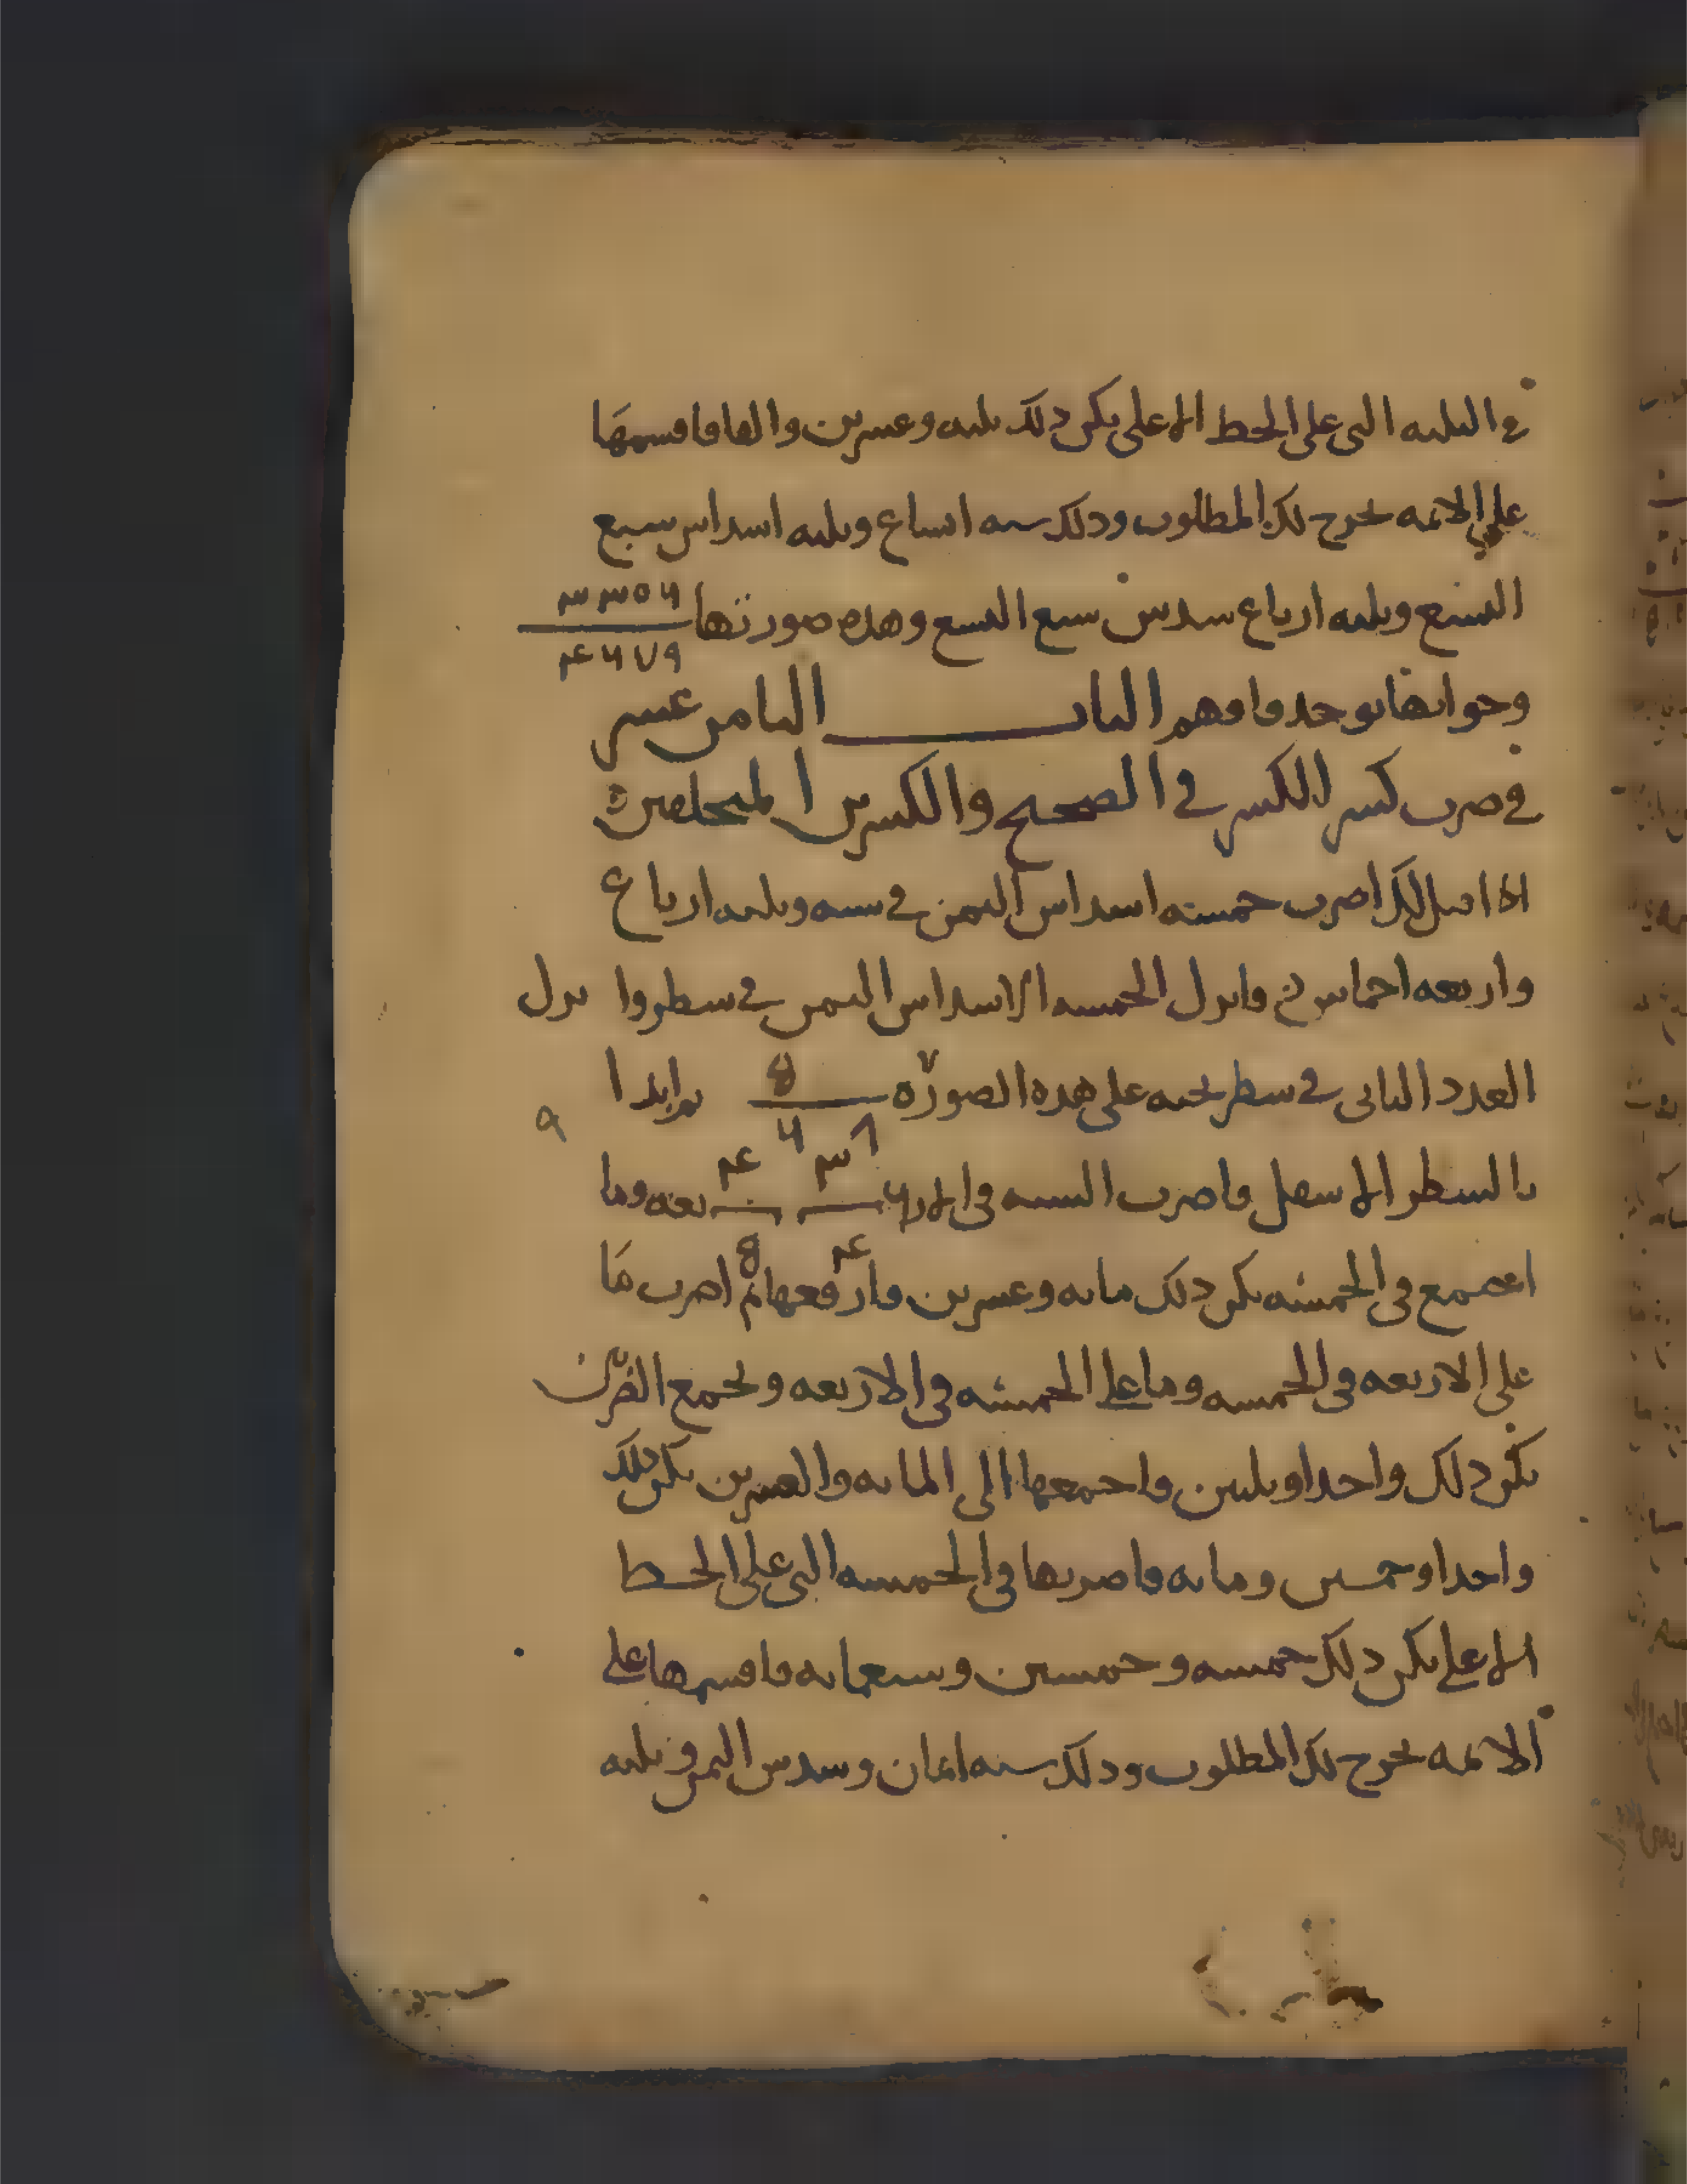 في الثلثه التي على الخط الاعلى يكن ذلك ثلثه وعشرين والفا فاقسمها
على الائمه يخرج لك المطلوب وذلك سته اتساع وثلثه اسداس سبع
التسع وثلثه ارباع سدس سبع التسع وهذه صورتها ٣٣٥٦
٤٦٧٩
وجوابها يوجد فافهم الباب الثامن عشر
في ضرب كسر الكسر في الصحيح والكسرين المختلفين
اذا قيل لك اضرب خمسه اسداس الثمن في سته وثلثه ارباع
واربعه اخماس فانزل الخمسه الاسداس الثمن في سطر وانزل
العدد الثاني في سطر تحته على هذه الصوره ٥ ثم ابدا
٦ ٨
بالسطر الاسفل فاضرب السته في الار ٦ ٣ ٤ بعه وما
٤ ٥
اجتمع في الخمسه يكن ذلك مائه وعشرين فارفعها ثم اضرب ما
على الاربعه في الخمسه وما على الخمسه في الاربعه وتجمع الضربين
يكن ذلك واحدا وثلثين واجمعها الى المائه والعشرين يكن ذلك
واحدا وخمسين ومائه فاضربها في الخمسه التي على الخط
الاعلى يكن ذلك خمسه وخمسين وسبعمائه فاقسمها على
الائمه يخرج لك المطلوب وذلك سته اثمان وسدس الثمن وثلثه